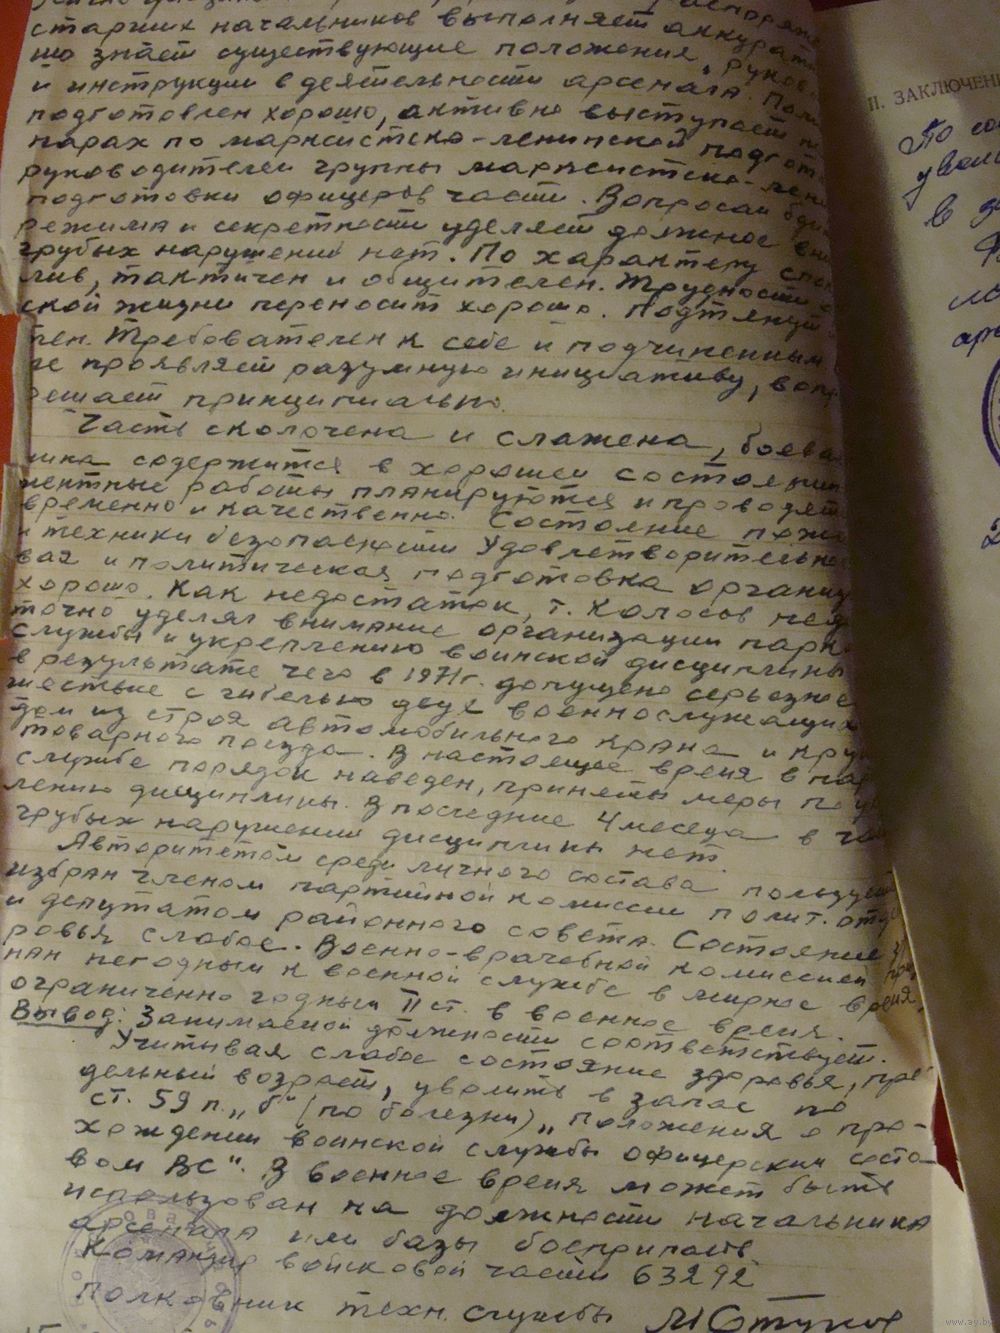 старших начальников выполняет аккурат
шо знает существующие положения, руков
и инструкции в деятельности арсенала. Поли
подготовлен хорошо, активно выступает
парах по марксистско-ленинской подгот
руководителем группы марксистско-лени
подготовки офицеров части. Вопросам бди
режима и секретности уделяет должное вни
грубых нарушений нет. По характеру спок
лив, тактичен и общителен. Трудности
ской жизни переносит хорошо. Подтянут
тен. Требователен к себе и подчиненным
те проявляет разумную инициативу, вопр
решает принципиально.
Часть сколочена и слажена, боева
ника содержится в хорошем состоянии
ментные работы планируются и проводят
временно и качественно. Состояние пожа
и техники безопасности удовлетворительное
вая и политическая подготовка организ
хорошо. Как недостаток, т. Колосов недо
точно уделял внимание организации парко
службы и укреплению воинской дисциплины
в результате чего в 1971г. допущено серьезное
шествие с гибелью двух военнослужащих
дом из строя автомобильного крана и кру
товарного поезда. В настоящее время в пар
службе порядок наведен, приняты меры по ук
лению дисциплины. В последние 4 месеца в час
грубых нарушений дисциплины нет.
Авторитетом среди личного состава пользует
избран членом партийной комиссии полит. отд
и депутатом районного совета. Состояние з
ровья слабое. Военно-врачебной комиссией приз
нан негодным к военной службе в мирное время,
ограниченно годным II ст. в военное время.
Вывод: Занимаемой должности соответствует.
Учитывая слабое состояние здоровья, пре
дельный возраст, уволить в запас по
ст. 59 п. „б" (по болезни) „Положения о про-
хождении воинской службы офицерским соста-
вом ВС". В военное время может быть
использован на должности начальника
арсенала или базы боеприпасов
Командир войсковой части 63292
Полковник техн. службы М Стуков
II. ЗАКЛЮЧЕНИ
По со
увол
в з
ар
2
www.ay.by